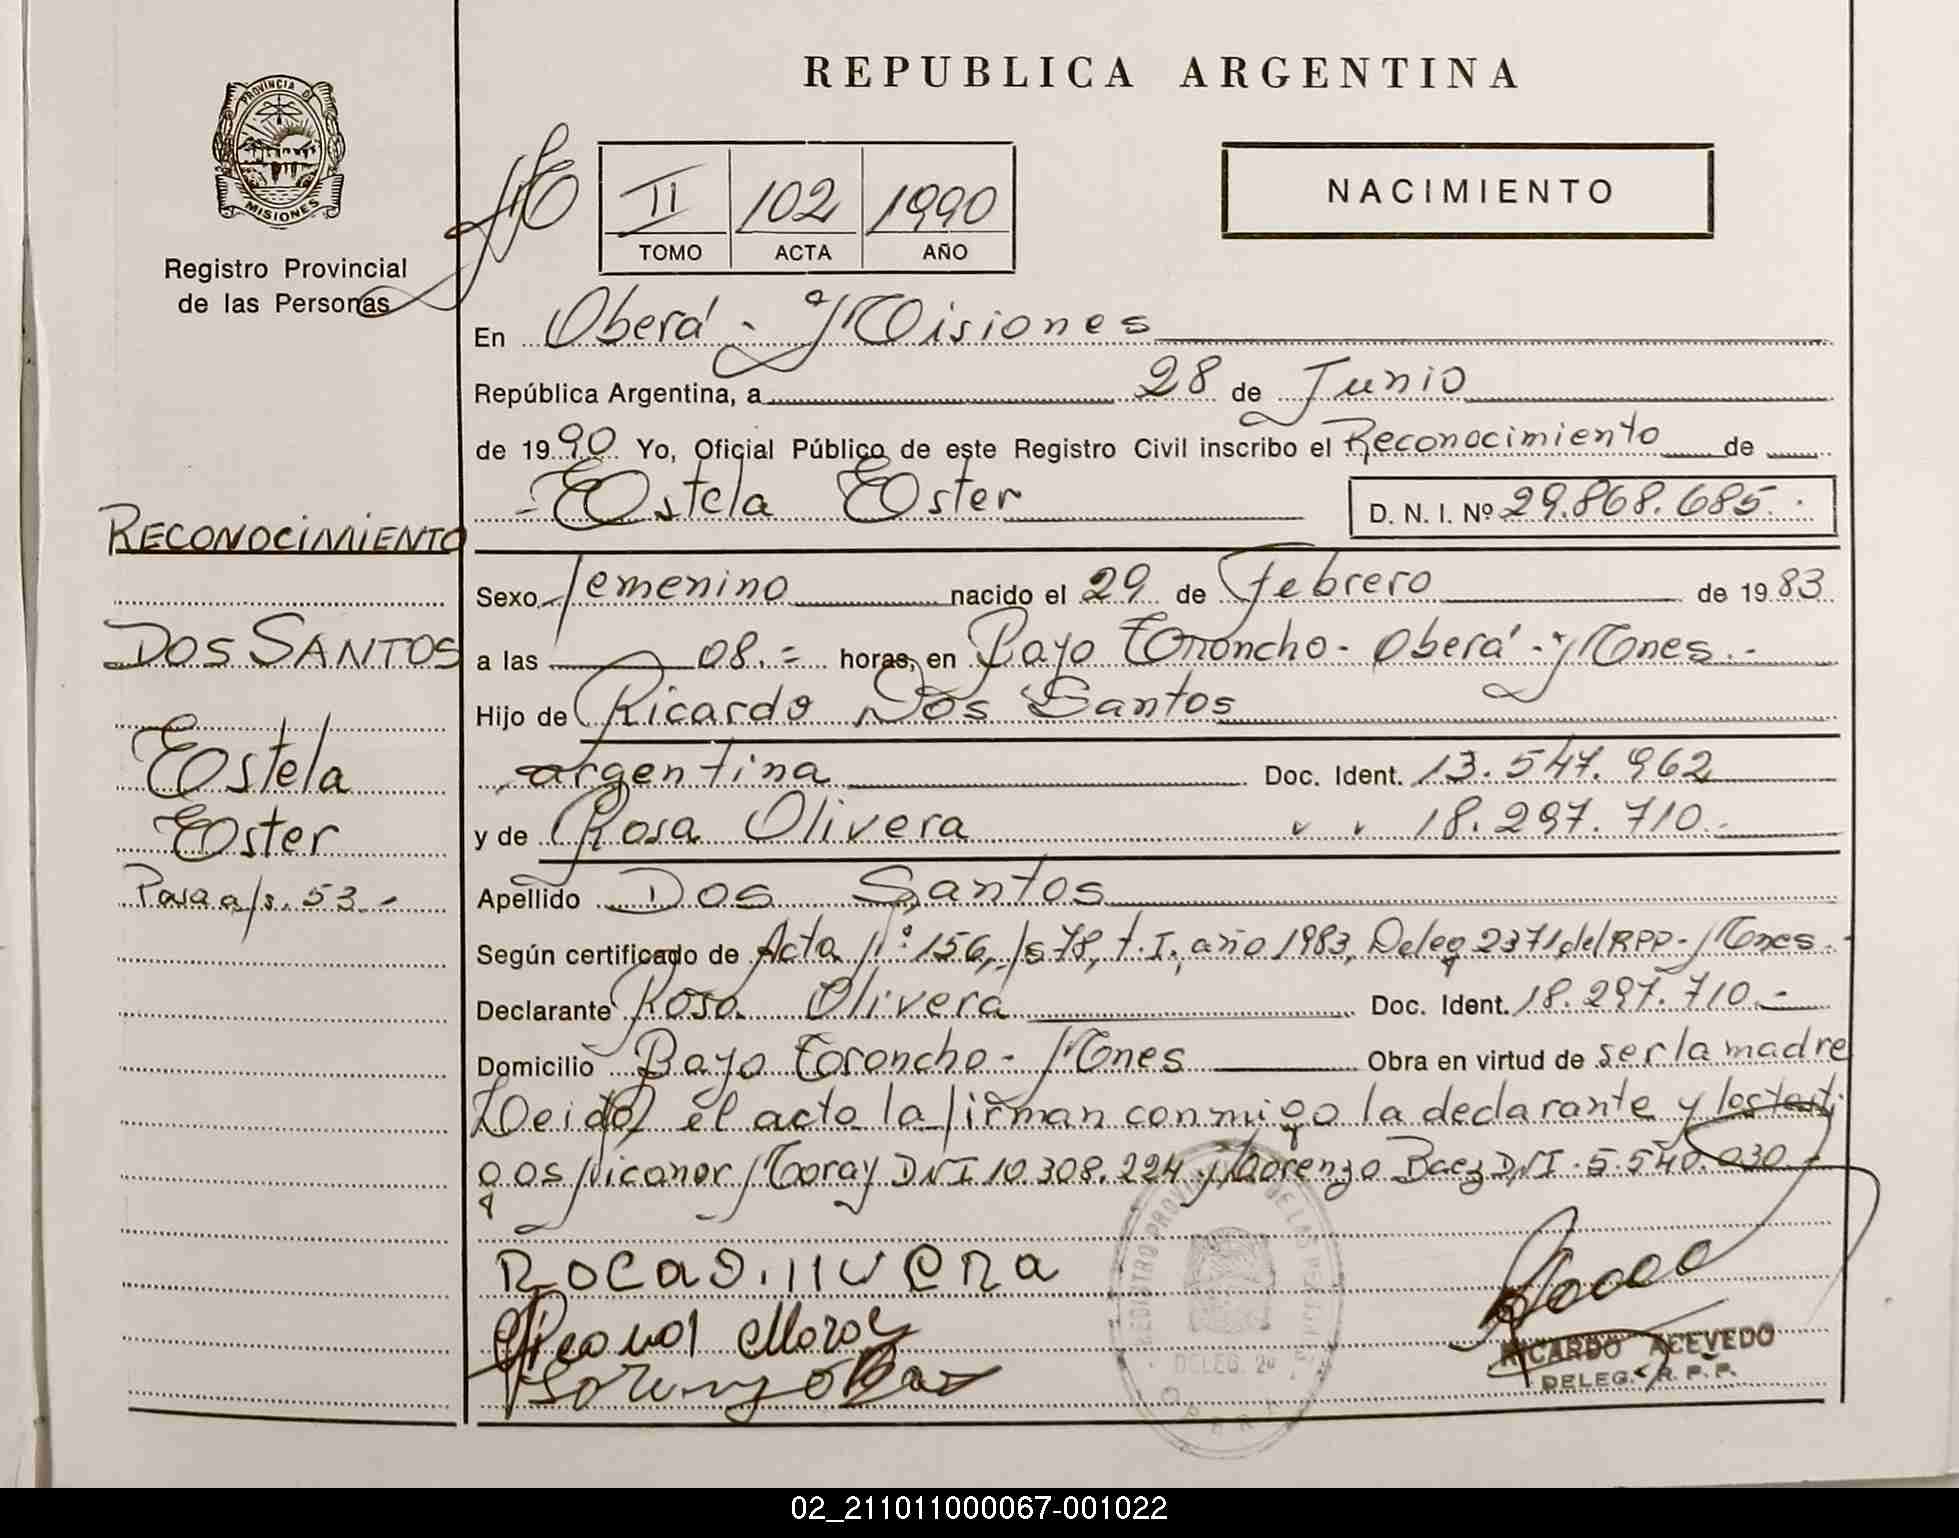 REPUBLICA ARGENTINA
PROVINCIA DE
MISIONES
Registro Provincial
de las Personas
II 102 1990
TOMO ACTA AÑO
NACIMIENTO
En Oberá - Misiones
República Argentina, a 28 de Junio
de 1990 Yo, Oficial Público de este Registro Civil inscribo el Reconocimiento de
Estela Ester D. N. I. Nº 29.868.685.
RECONOCIMIENTO
DOS SANTOS
Estela
Ester
Sexo femenino nacido el 29 de Febrero de 1983
a las 08.= horas, en Bajo Troncho - Oberá - Mnes.-
Hijo de Ricardo Dos Santos
argentina Doc. Ident. 13.547.962
y de Rosa Olivera " " 18.297.710.-
Apellido Dos Santos
Según certificado de Acta Nº 156, fs 78, t. I, año 1983, Deleg 2371 del RPP - Mnes.-
Declarante Rosa Olivera Doc. Ident. 18.297.710.-
Domicilio Bajo Troncho - Mnes Obra en virtud de ser la madre
Leida el acta la firman conmigo la declarante y los testi
gos Nicanor Moray DNI 10.308.224 y Lorenzo Baez DNI 5.540.030.-
ROCA O.IIVERA
Nicanor Moray
Lorenzo Baez
RICARDO ACEVEDO
DELEG. R. P. P.
REGISTRO PROVINCIAL DE LAS PERSONAS
OBERA
02_211011000067-001022